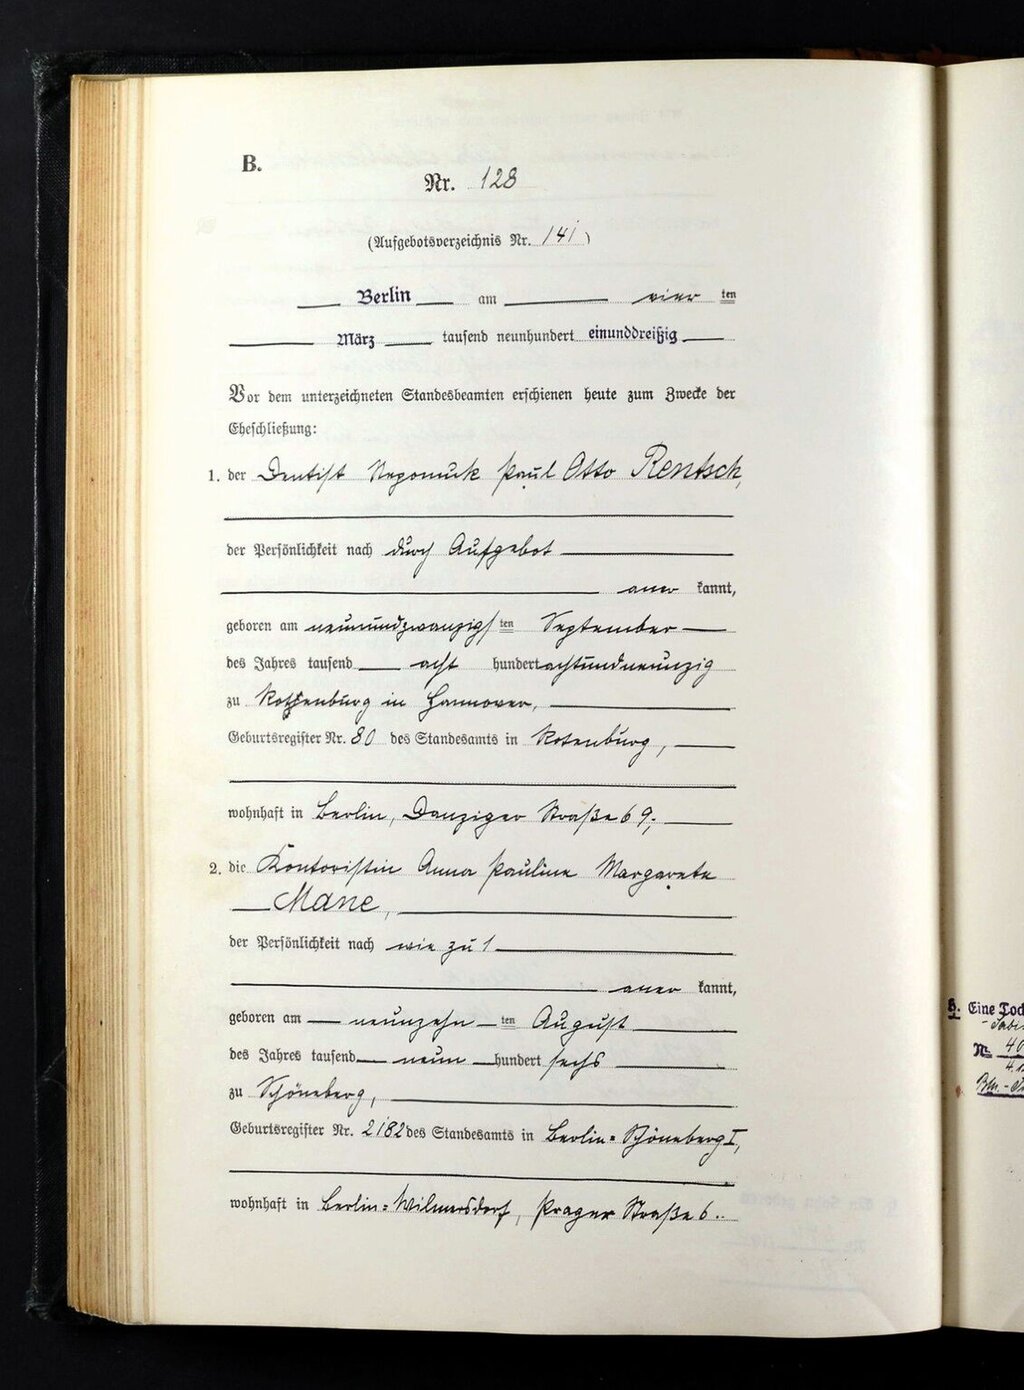 B.
Nr. 128
(Aufgebotsverzeichnis Nr. 141)
Berlin am vier ten
März tausend neunhundert einunddreißig
Vor dem unterzeichneten Standesbeamten erschienen heute zum Zwecke der
Eheschließung:
1. der Dentist Nepomuk Paul Otto Rentsch,
der Persönlichkeit nach durch Aufgebot
aner kannt,
geboren am neunundzwanzigsten September
des Jahres tausend acht hundert achtundneunzig
zu Rothenburg in Hannover,
Geburtsregister Nr. 80 des Standesamts in Rotenburg,
wohnhaft in Berlin, Danziger Straße 69;
2. die Kontoristin Anna Pauline Margarete
Mane,
der Persönlichkeit nach wie zu 1
aner kannt,
geboren am neunzehn ten August
des Jahres tausend neun hundert sechs
zu Schöneberg,
Geburtsregister Nr. 2182 des Standesamts in Berlin=Schöneberg I,
wohnhaft in Berlin=Wilmersdorf, Prager Straße 6.
Eine
Nr. 40